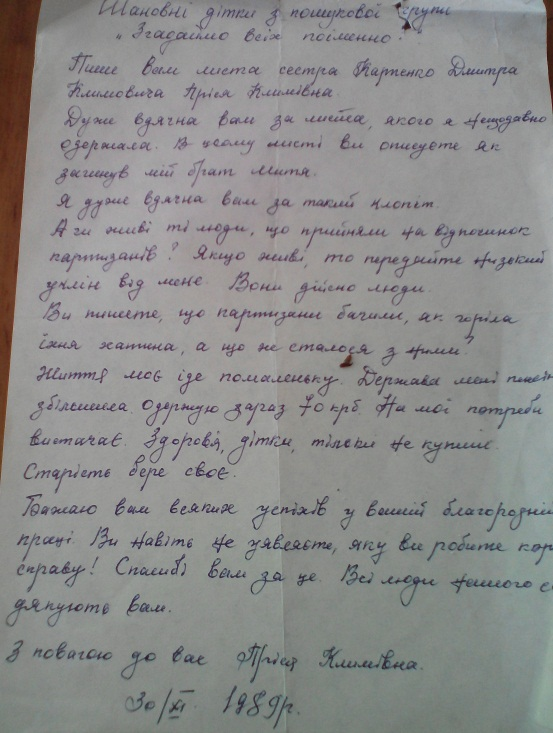 Шановні дітки з пошукової групи
„Згадаймо всіх поіменно!"
Пише вам листа сестра Карпенко Дмитра
Климовича Пріся Климівна.
Дуже вдячна вам за листа, якого я нещодавно
одержала. В цьому листі ви описуєте як
загинув мій брат Митя.
Я дуже вдячна вам за такий клопіт.
А чи живі ті люди, що прийняли на відпочинок
партизанів? Якщо живі, то передайте низький
уклін від мене. Вони дійсно люди.
Ви пишете, що партизани бачили, як горіла
їхня хатина, а що же сталося з ними?
Життя моє іде помаленьку. Держава мені
збільшила. Одержую зараз 70 крб. На мої потреби
вистачає. Здоров'я, дітки, тільки не купиш.
Старість бере своє.
Бажаю вам всяких успіхів у вашій благородній
праці. Ви навіть не уявляєте, яку ви робите
справу! Спасибі вам за це. Всі люди нашого
дякують вам.
З повагою до вас Пріся Климівна.
30/XI 1989р.